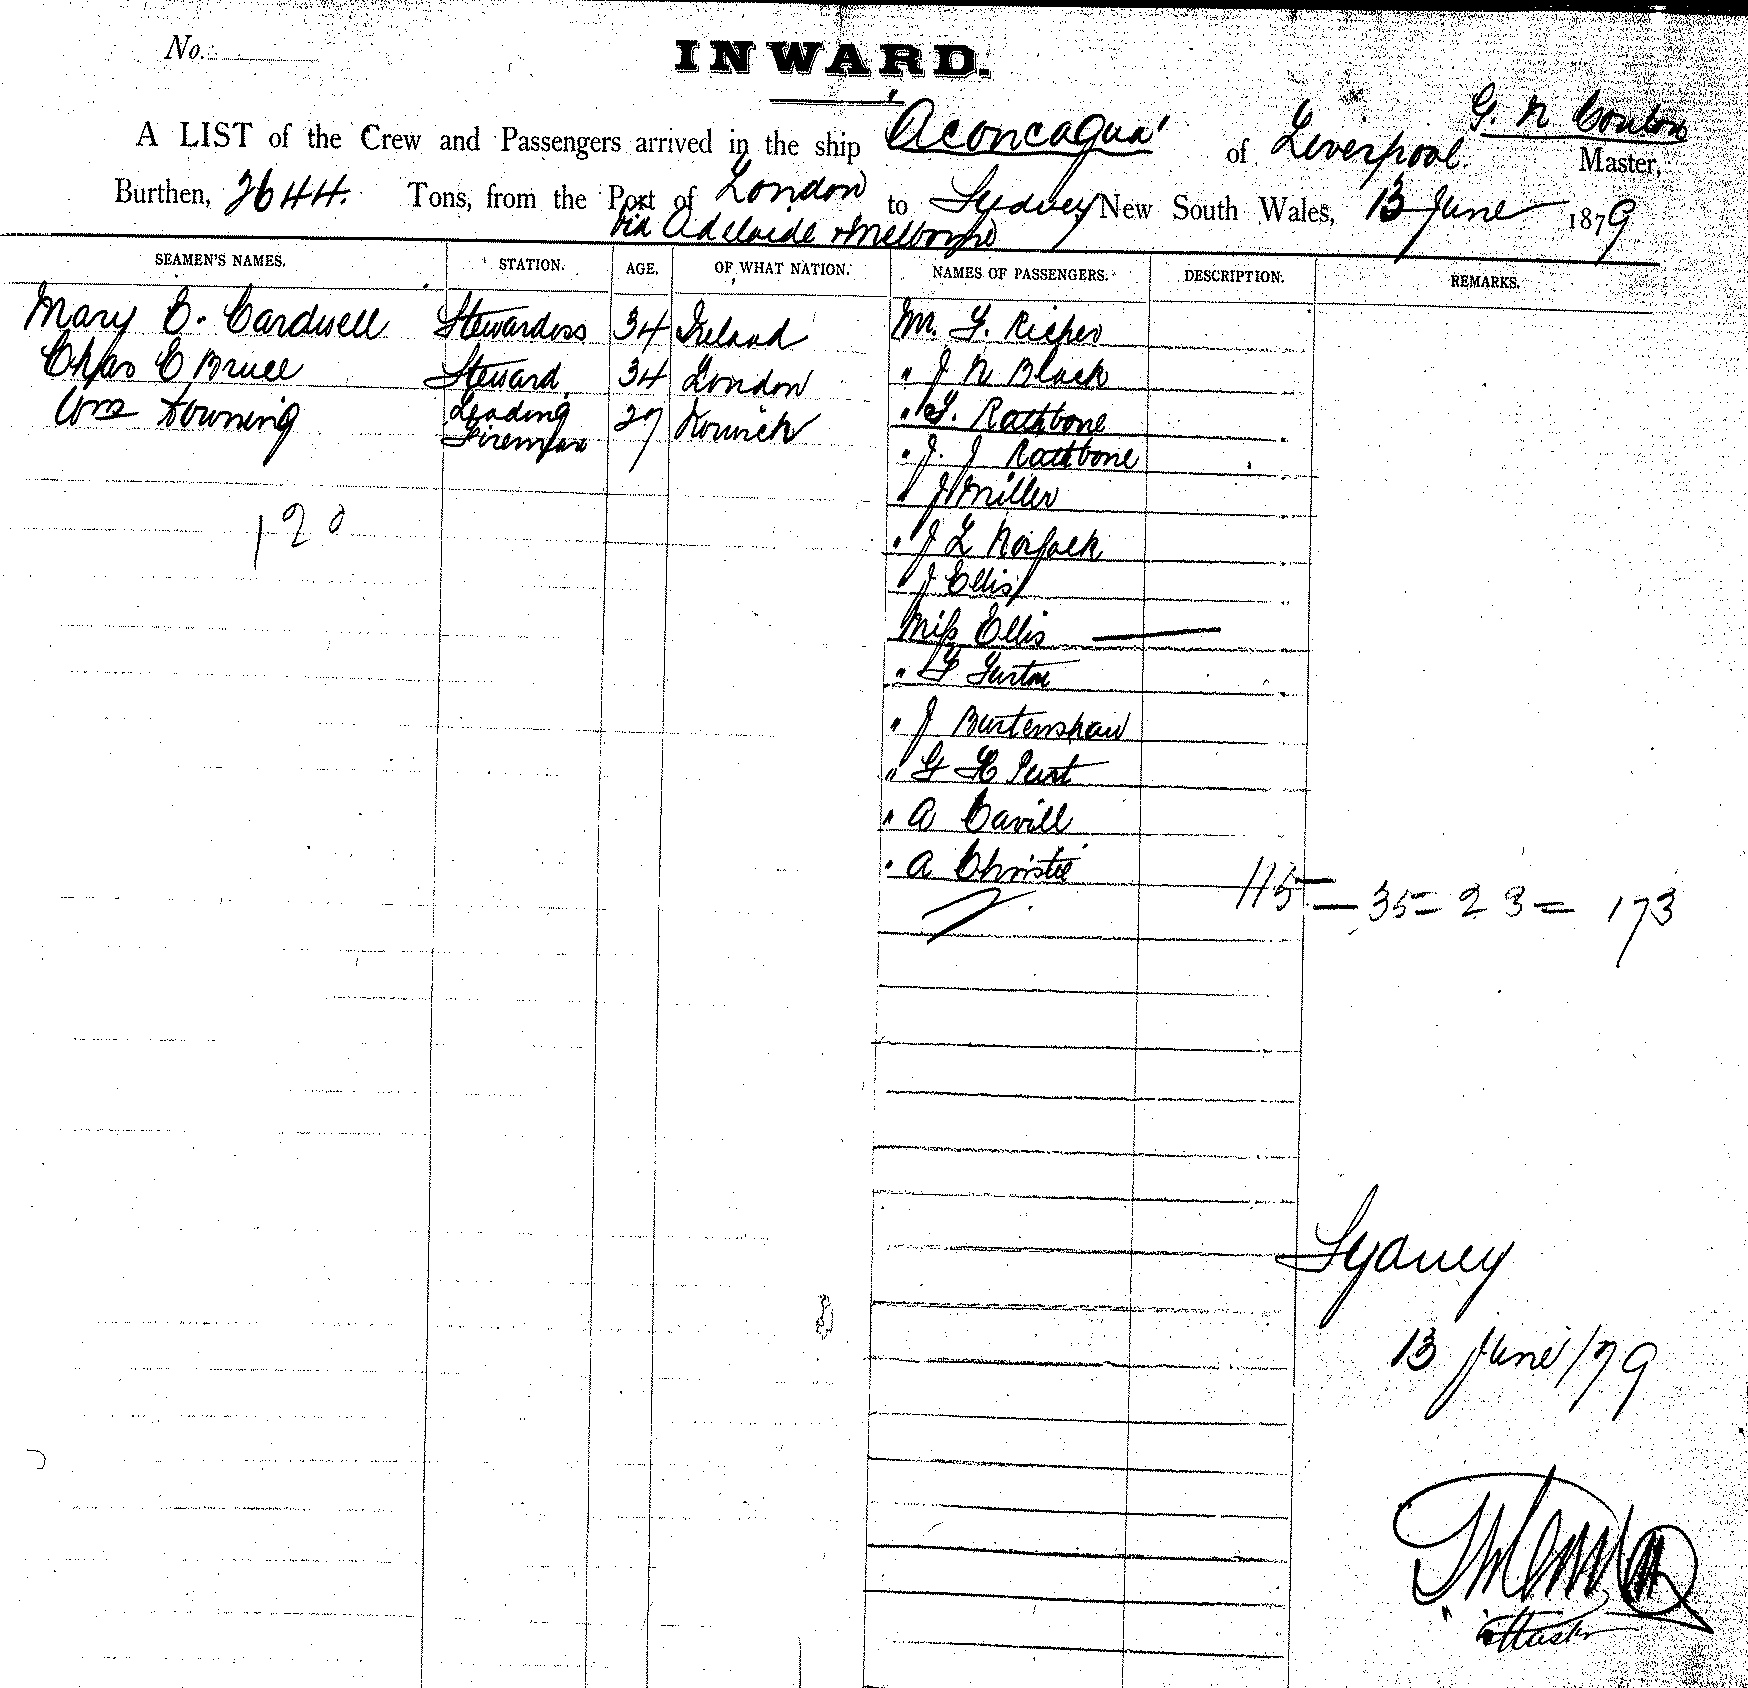 No.
INWARD.
A LIST of the Crew and Passengers arrived in the ship 'Aconcagua' of Liverpool. G. N Conlan Master,
Burthen, 2644. Tons, from the Port of London to Sydney New South Wales, 13 June 1879
via Adelaide & Melbourne
SEAMEN'S NAMES. STATION. AGE. OF WHAT NATION. NAMES OF PASSENGERS. DESCRIPTION. REMARKS.
Mary C. Cardwell Stewardess 34 Ireland Mr. G. Richer
Chas C Bruce Steward 34 London " J N Black
Wm Downing Leading Fireman 27 Norwich " G. Rathbone
" J. J Rathbone
" J Miller
120
" J L Norfolk
" J Ellis
Miss Ellis
" G
" J Burtenshaw
" G H
" A Cavill
" A Christie
115 – 35 = 23 = 173
Sydney
13 June /79
Master